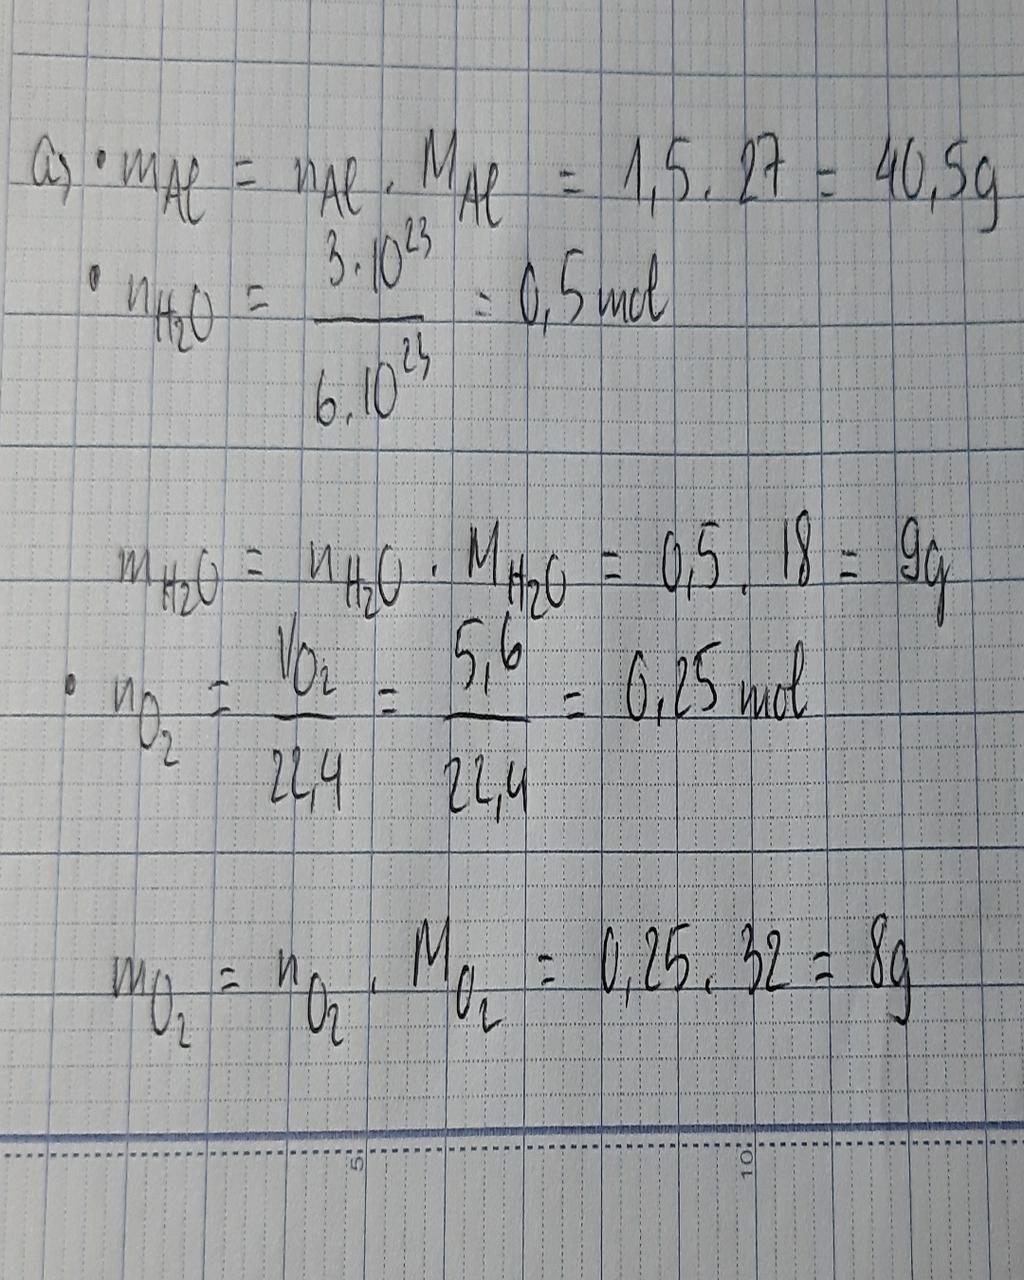 a, • mAl = nAl . MAl = 1,5 . 27 = 40,5g
• nH₂O = 3.10²³ / 6.10²³ = 0,5 mol
mH₂O = nH₂O . MH₂O = 0,5 . 18 = 9g
• nO₂ = VO₂ / 22,4 = 5,6 / 22,4 = 0,25 mol
mO₂ = nO₂ . MO₂ = 0,25 . 32 = 8g
5 10